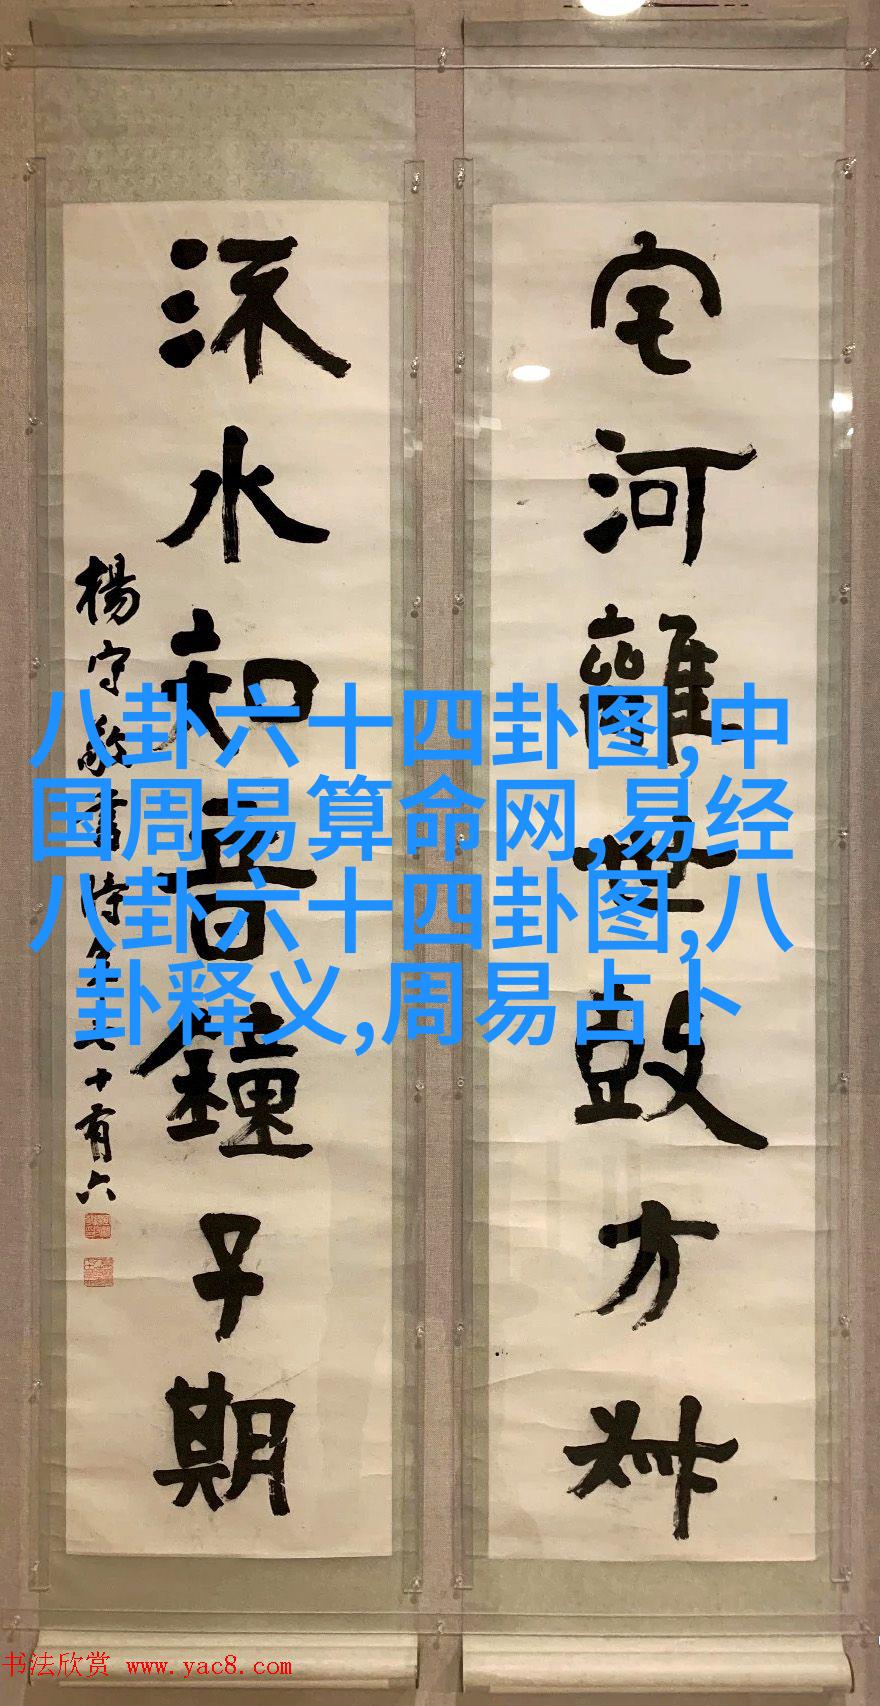 宅河鼓方叔
流水知音鐘子期
楊守敬書時年七十有六
八卦六十四卦图,中
国周易算命网,易经
八卦六十四卦图,八
卦释义,周易占卜
书法欣赏 www.yac8.com